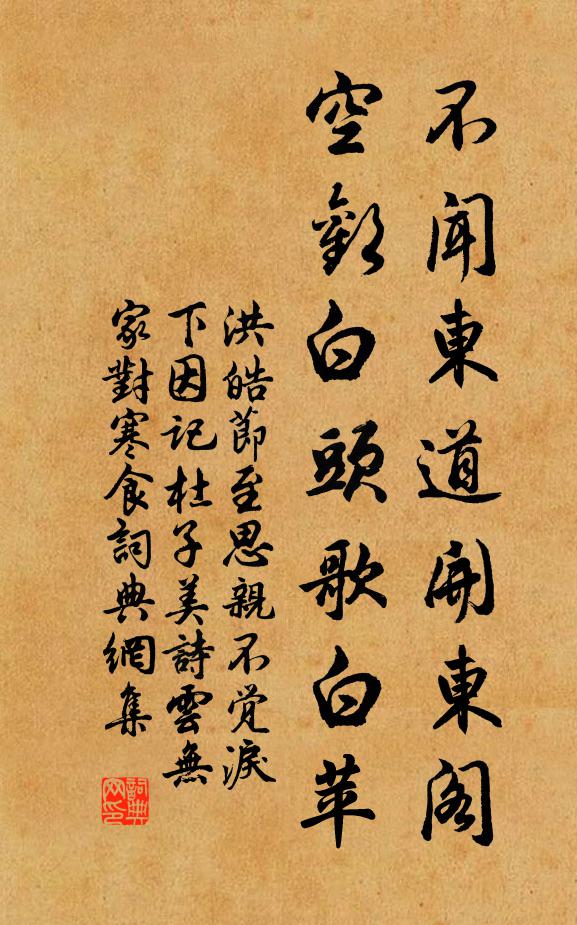 不聞東道開東閣
空歡白頭歌白苹
洪皓節至思親不覺淚
下因記杜子美詩雲無
家對寒食詞典網集
詞典網印